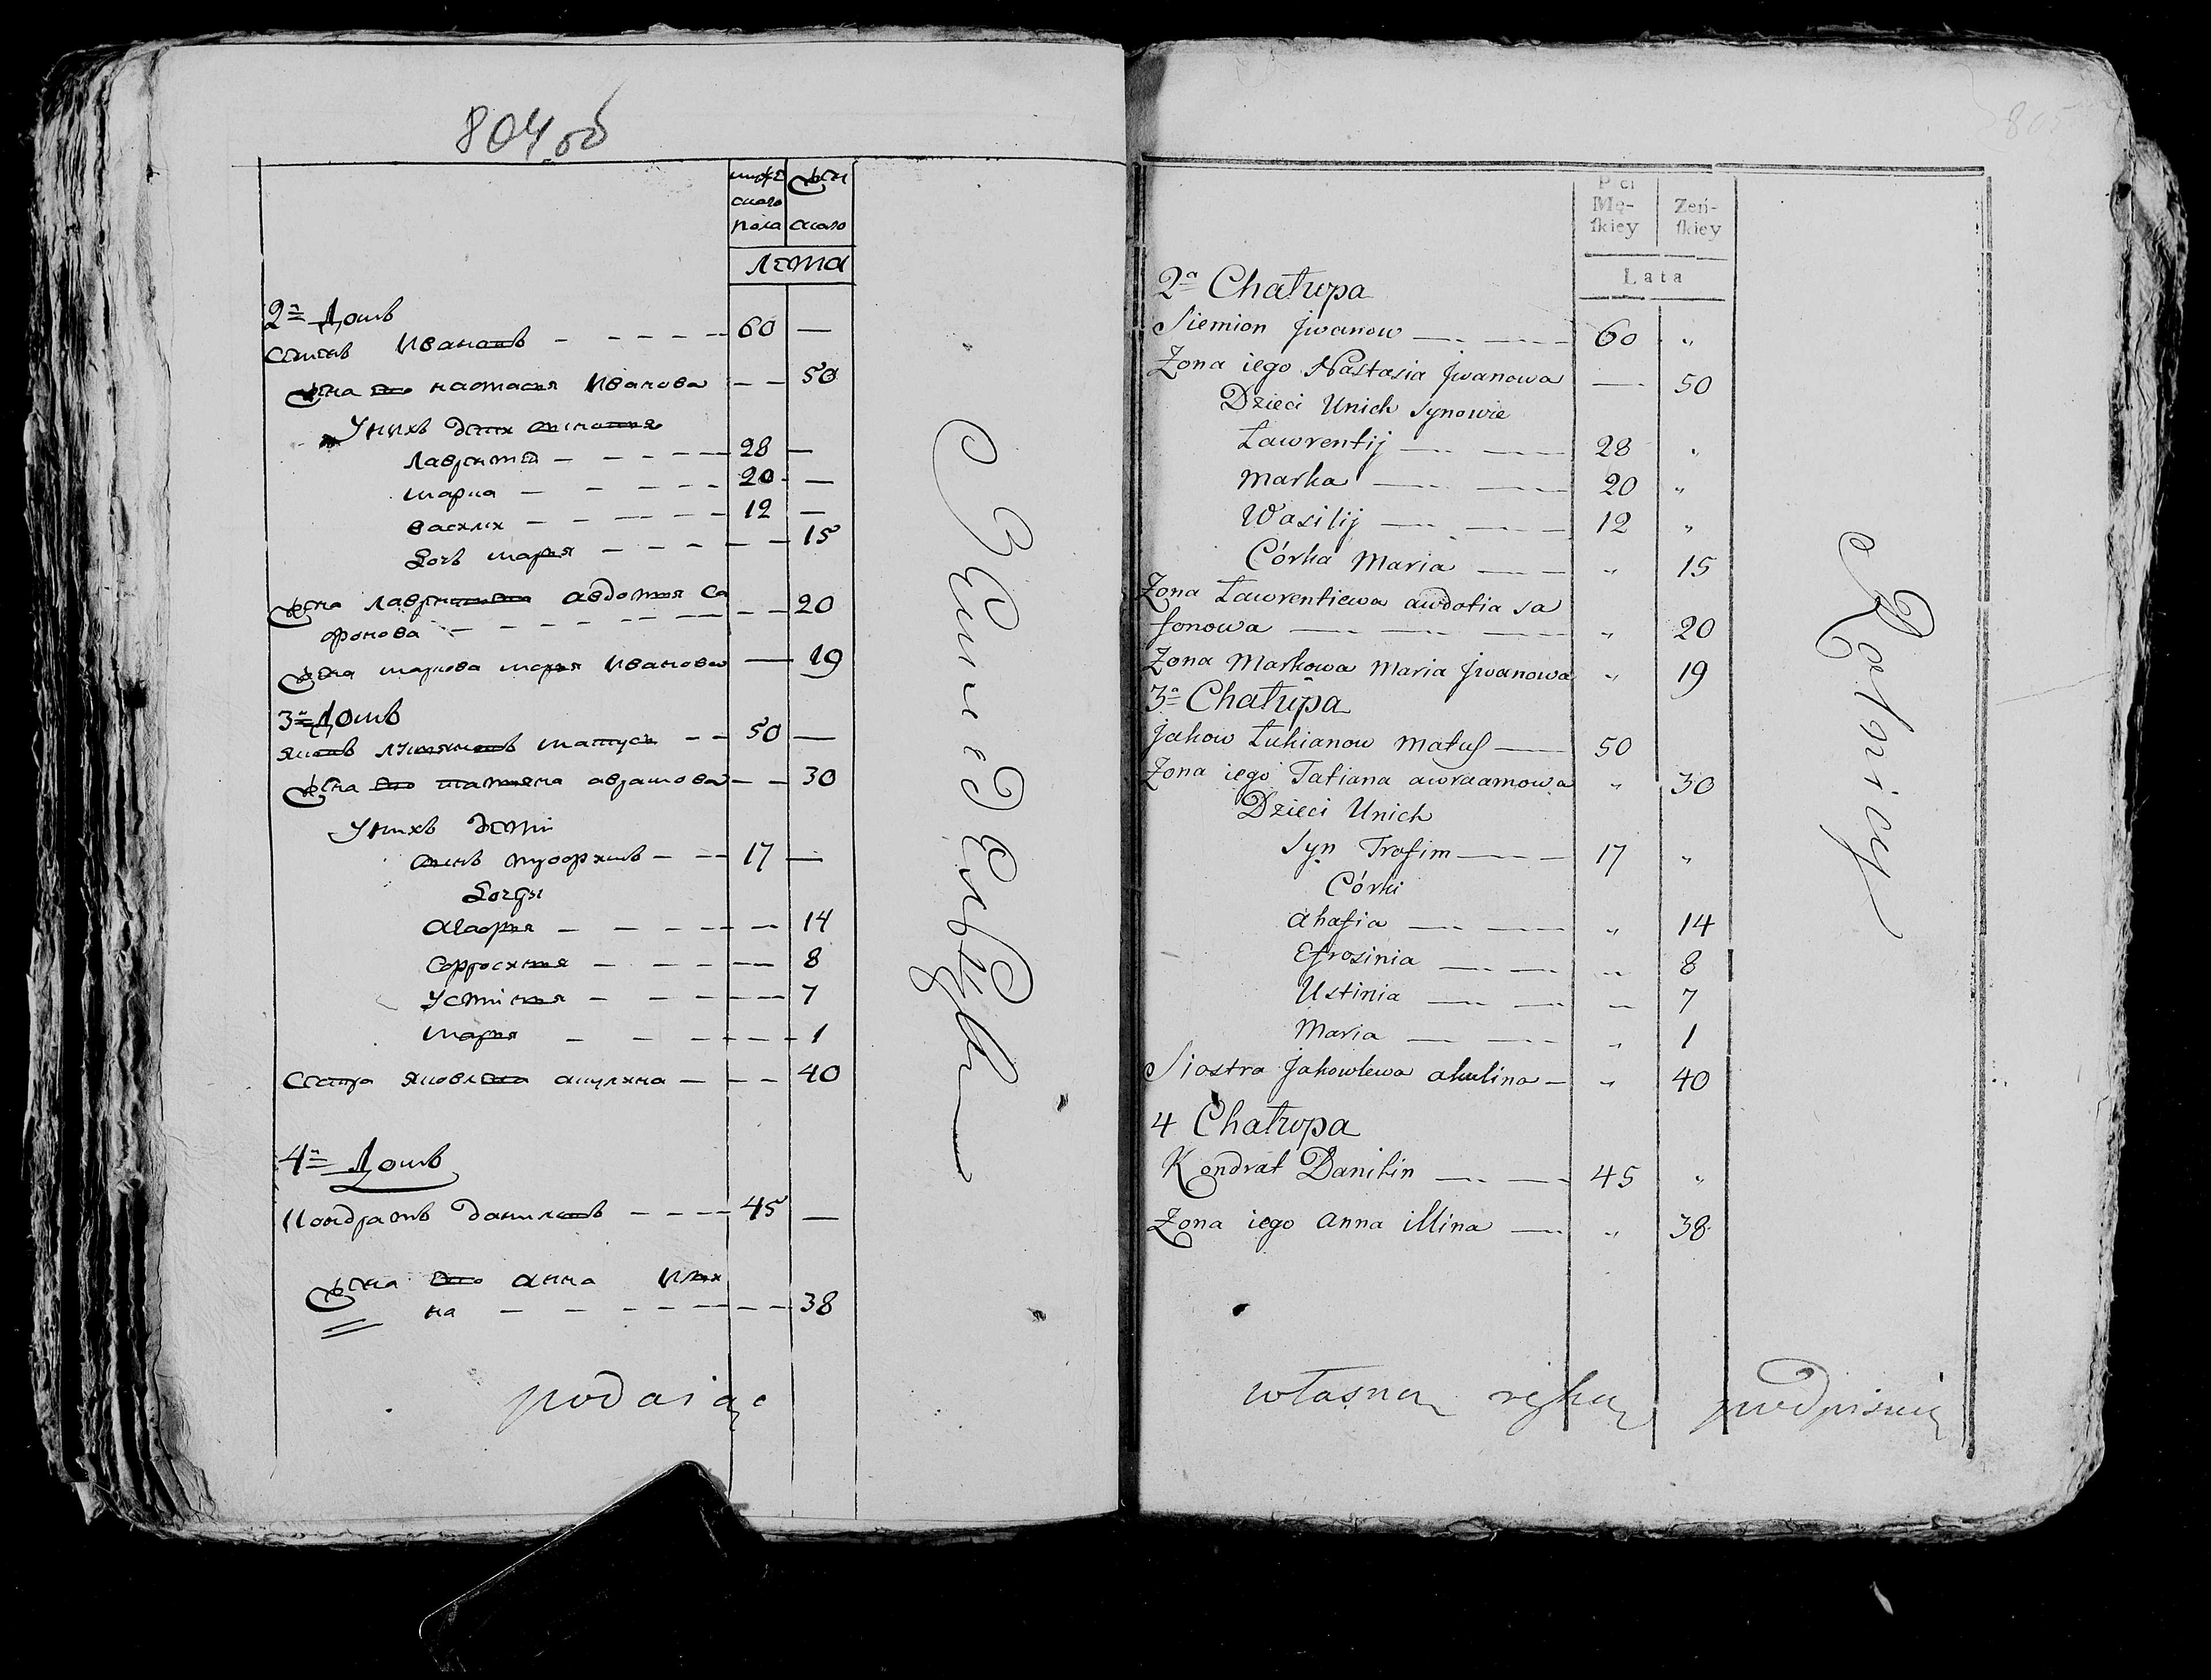 804 об
мужс
ского
пола
жен
ского
лета
2й Домъ
Семенъ Ивановъ 60 —
жена его настасия Иванова 50
У нихъ дети синовия
Лаврентей 28 —
марка 20 —
василих 12 —
Дочь мария 15
жена лаврентиева авдотия Са
фонова 20
жена маркова мария Иванова 19
3й Домъ
яковъ лукяновъ матусъ 50 —
жена его татияна аврамова 30
У нихъ дети
синъ трофимъ 17 —
Дочери
агафия 14
ефросиния 8
Устиния 7
мария 1
Сестра яковлева акулина 40
4й Домъ
Кондратъ даниловъ 45 —
жена его анна Или
на 38
podaiąc
805
Płci
Mę-
ſkiey
Zeń-
ſkiey
Lata
2a Chałupa
Siemion Jwanow 60 "
Zona iego Nastasia Jwanowa 50
Dzieci Unich Synowie
Lawrentij 28 "
Marka 20 "
Wasilij 12 "
Córka Maria " 15
Zona Lawrentiewa awdotia sa
fonowa " 20
Zona Markowa Maria Jwanowa " 19
3a Chałupa
Jakow Łukianow Matuſ 50
Zona iego Tatiana awraamowa " 30
Dzieci Unich
Syn Trofim 17 "
Córki
ahafia " 14
Efrosinia " 8
Ustinia " 7
Maria " 1
Siostra Jakowlewa akulina " 40
4 Chałupa
Kondrat Danilin 45 "
Zona iego anna illina " 38
własną ręką podpisuię